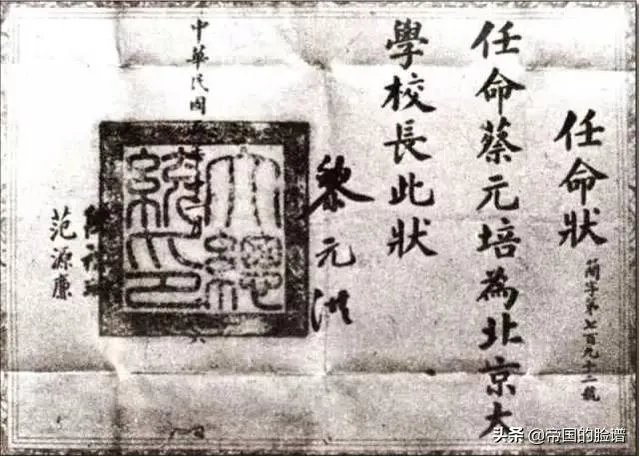 任命狀
簡字第七百九十二號
任命蔡元培為北京大
學校長此狀
黎元洪
大總
統印
中華民國
范源廉
头条 @帝国的脸谱